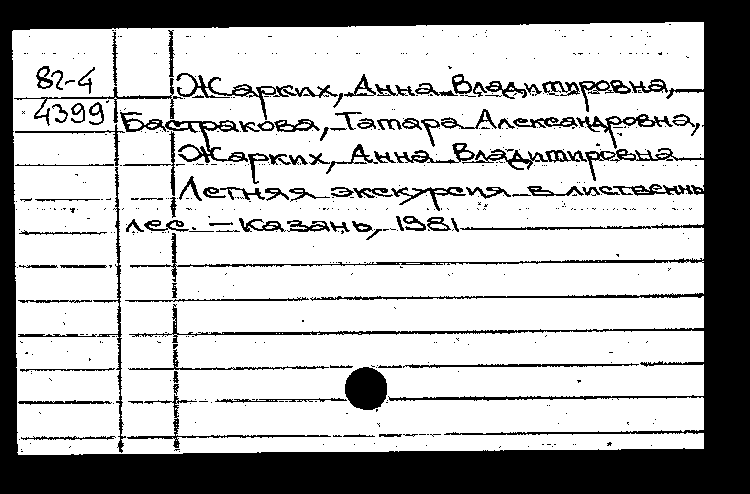 82-4
4399
Жарких, Анна Владимировна,
Бастракова, Тамара Александровна,
Жарких, Анна Владимировна
Летняя экскурсия в лиственны
лес. — Казань, 1981